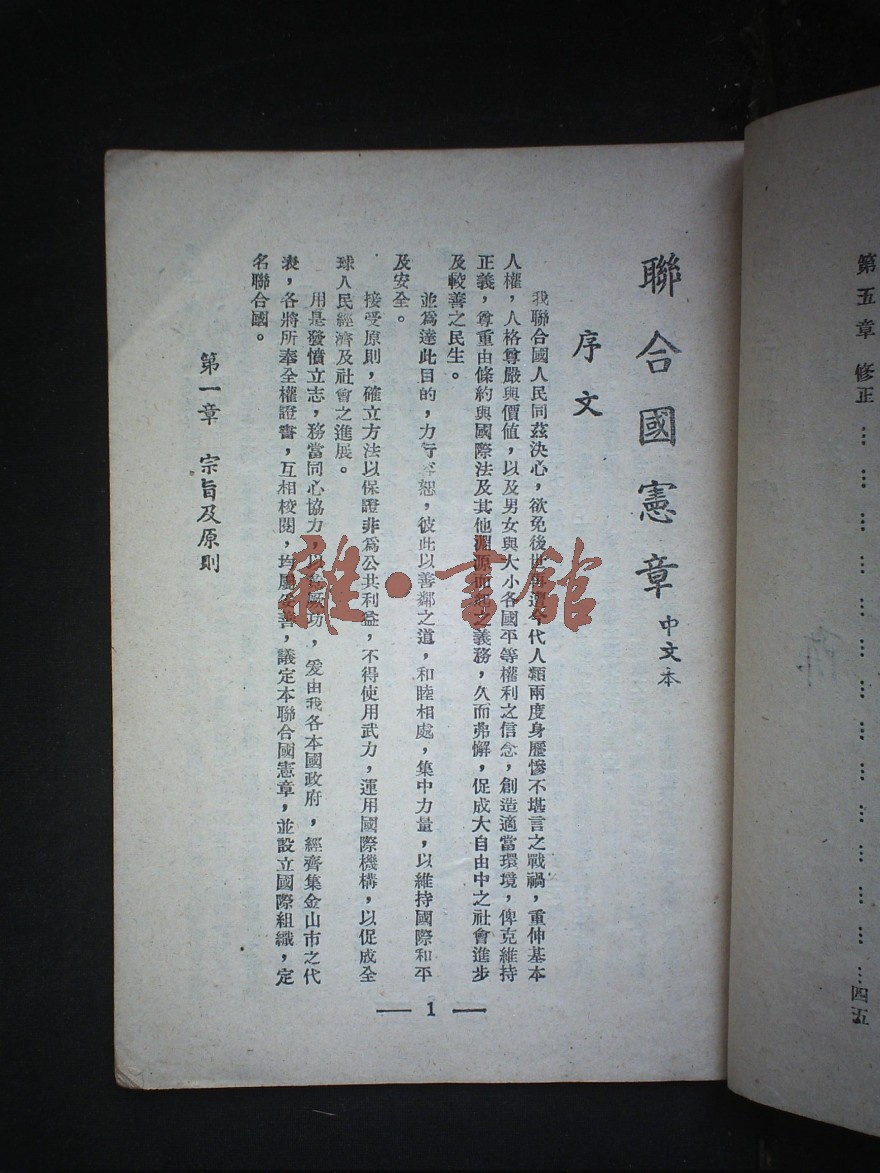 第五章 修正 … … … … … … … … … … … … 四五
聯合國憲章 中文本
序文
我聯合國人民同茲決心，欲免後世再遭今代人類兩度身歷慘不堪言之戰禍，重伸基本
人權，人格尊嚴與價值，以及男女與大小各國平等權利之信念，創造適當環境，俾克維持
正義，尊重由條約與國際法及其他淵源而起之義務，久而弗懈，促成大自由中之社會進步
及較善之民生。
並爲達此目的，力行容恕，彼此以善鄰之道，和睦相處，集中力量，以維持國際和平
及安全。
接受原則，確立方法以保證非爲公共利益，不得使用武力，運用國際機構，以促成全
球人民經濟及社會之進展。
用是發憤立志，務當同心協力，以 厥功，爰由我各本國政府，經齊集金山市之代
表，各將所奉全權證書，互相校閱，均屬妥善，議定本聯合國憲章，並設立國際組織，定
名聯合國。
第一章 宗旨及原則
1
雜·書館